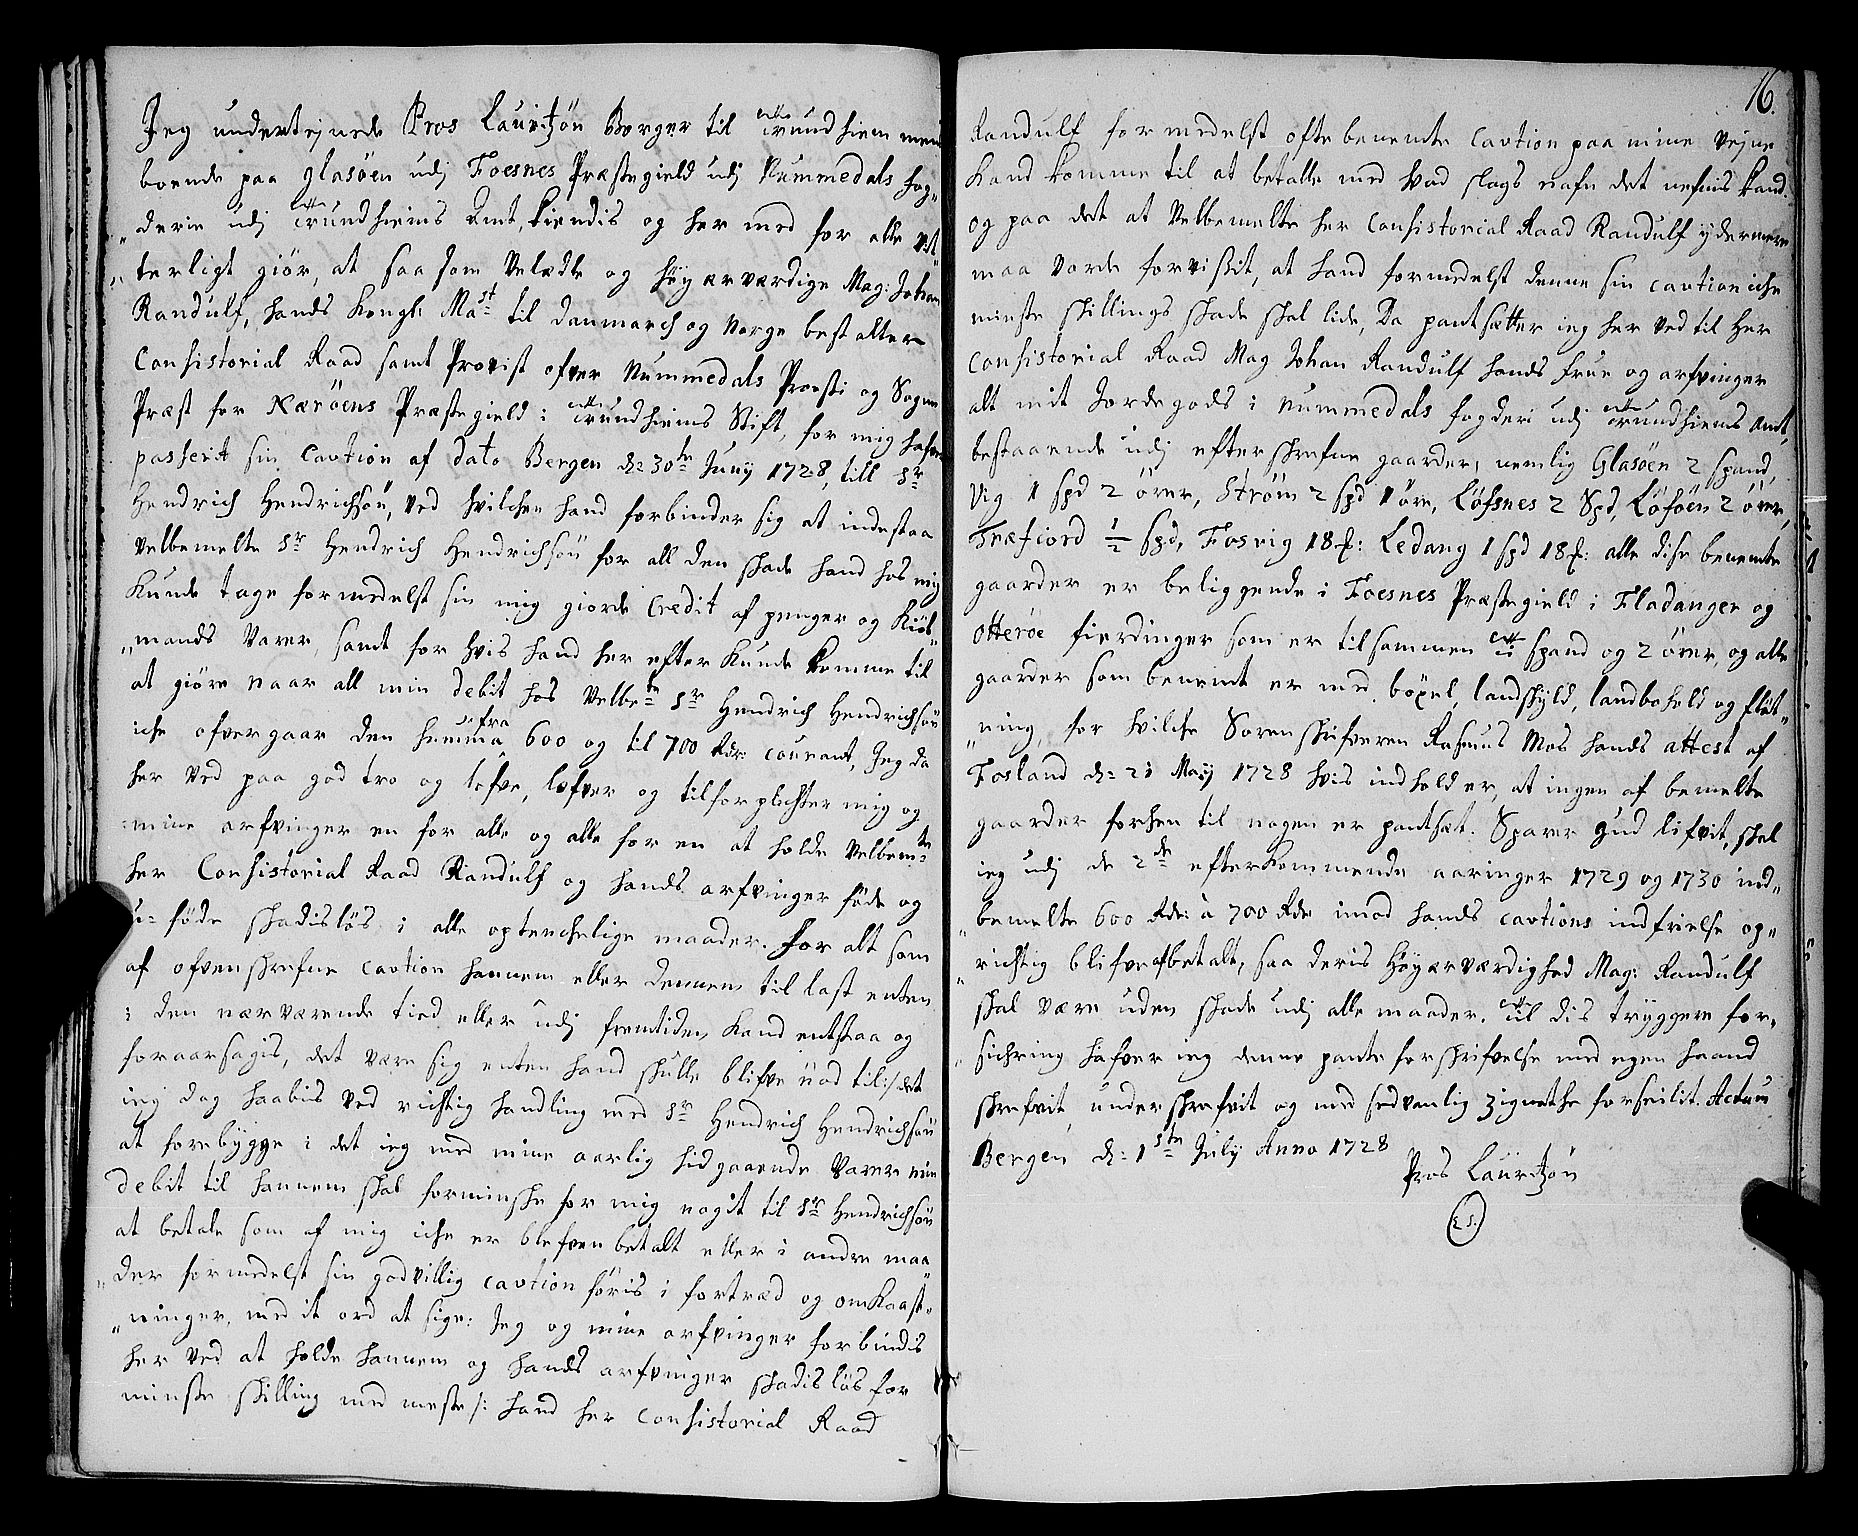 Jeg undertejnede Pros Lauritzøn Borger til Trundhiem men
boende paa Glasøen udj Foesnes Præstegield udj Nummedals fog„
„derie udj Trundhiems Amt, kiendis og her med for alle vit„
„terligt giør, at saasom Velædle og høyærværdige Mag: Johan
Randulf, hands Kongl: Mast til Danmarch og Norge bestalter
Consistorial Raad samt Provist ofver Nummedals Provsti og Sogne
Præst for Nærøens Præstegield i Trundhiems Stift, for mig hafver
passerit sin Cavtion af dato Bergen d: 30te Juny 1728, till Sr
Hendrich Hendrichsøn, ved hvilchen hand forbinder sig at indestaa
velbemelte Sr Hendrich Hendrichsøn for all den skade hand hos mig
kunde tage formedelst sin mig giorde Credit af penger og kiøb„
„mands varer, samt for hvis hand her efter kunde komme til
at giøre naar all min debit hos Velbete Sr Hendrich Hendrichsøn
iche ofvergaar den summa fra 600 og til 700 Rdr: Courant, Jeg da
her ved paa god tro og lofve, lofver og tilforplichter mig og
mine arfvinger en for alle og alle for en at holde Velbemte
her Consistorial Raad Randulf og hands arfvinger føde og
u-føde skadisløs i alle optenchelige maader. for alt som
af ofvenskrefne Cavtion hannem eller dennem til last enten
i den nærværende tied eller udj fremtiden kand entstaa og
foraarsagis, det være sig enten hand skulle blifve nød til:/det
jeg dog haabis ved richtig handling med Sr Hendrich Hendrichsøn
at forebygge i det jeg med mine aarlig hidgaaende varer min
debit til hannem skal forminske for mig nogit til Sr Hendrichsøn
at betale som af mig iche er blefven betalt eller i andre maa„
„der formedelst sin godvillig Cavtion føris i fortræd og omkaast„
„ninger, med it ord at sige: Jeg og mine arfvinger forbindis
her ved at holde hannem og hands arfvinger skadisløs for
minste skilling med meste/: hand her Consistorial Raad
16.
Randulf formedelst ofte benemte Cavtion paa mine vejne
kand komme til at betalle med hvad slags nafn det nefnis kand.
og paa det at Velbemelte her Consistorial Raad Randulf ydermere
maa vorde forvissit, at hand formedelst denne sin Cavtion iche
minste skillings skade skal lide, Da pantsætter jeg her ved til Her
Consistorial Raad Mag Johan Randulf hands frue og arfvinger
alt mit Jordegods i Nummedals fogderi udj Trundhiems Amt,
bestaaende udj efterskrefne gaarder, nemlig Glasøen 2 spand,
Vig 1 spd 2 ører, Strøm 2 spd 1 øre, Løfsnes 2 Spd, Løføen 2 ører,
Træfiord ½ Spd, Fosvig 18 f: Ledang 1 spd 18 f: alle disse benemte
gaarder er beliggende i Foesnes Præstegield i Fladanger og
Otterøe fierdinger som er tilsammen spand og 2 ører, og alle
gaarder som benemt er med bøxel, landskyld, landbohold og fløt„
„ning, for hvilche Sorenskrifveren Rasmus Mos hands attest af
Fosland d: 21 Maij 1728 hvis indhold er, at ingen af bemelte
gaarder forhen til nogen er pantsæt. Sparer Gud lifvit, skal
jeg udj de 2de efterkommende aaringer 1729 og 1730 ind„
„bemelte 600 Rdr: à 700 Rdr imod hands Cavtions indfrielse op„
„richtig blifve afbetalt, saa deris Høyærværdighed Mag: Randulf
skal være uden skade udj alle maader. Til dis tryggere for„
„sichring hafver jeg denne pante forskrifvelse med egen haand
skrefvit, underskrefvit og med sedvanlig Zignethe forseilit. Actum
Bergen d: 1ste July Anno 1728
Pros Lauritzøn
L.S.